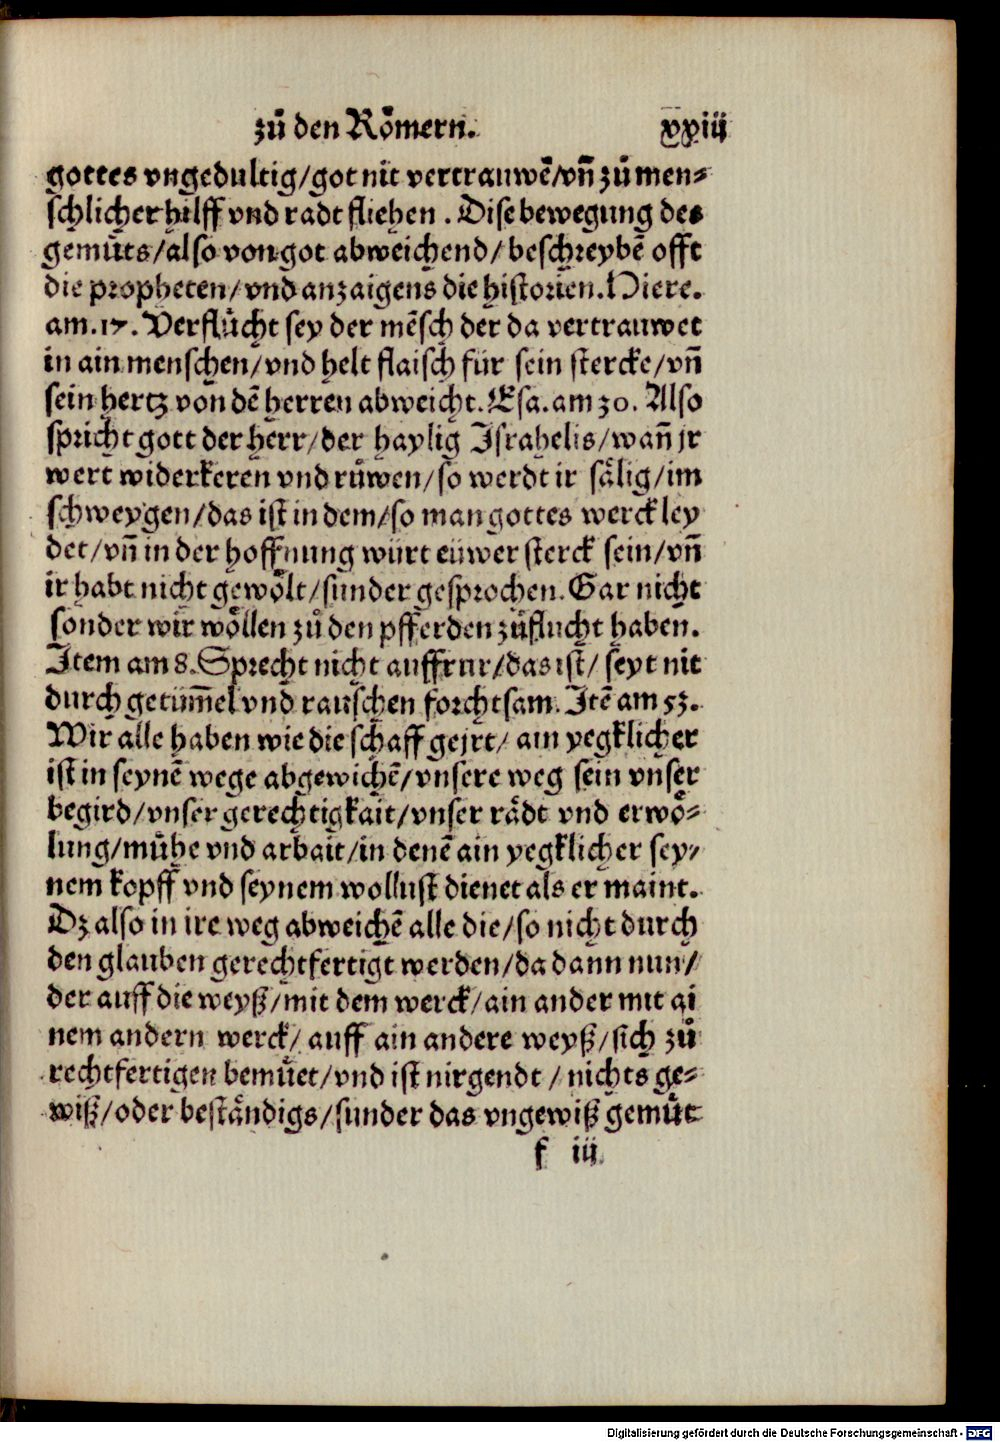 zů den Rӧmern. xxiij
gottes vngedultig/got nit vertrauwẽ/vñ zů men⸗
schlicher hilff vnd radt fliehen . Dise bewegung des
gemůts/also von got abweichend/beschreybẽ offt
die propheten/vnd anzaigens die historien. Hiere.
am.17. Verflůcht sey der mẽsch der da vertrauwet
in ain menschen/vnd helt flaisch für sein stercke/vñ
sein hertz von dẽ herren abweicht. Esa. am 30. Also
spricht gott der herr/der haylig Israhelis/wañ jr
wert widerkeren vnd růwen/so werdt ir sålig/im
schweygen/das ist in dem/so man gottes werck ley
det/vñ in der hoffnung würt eüwer sterck sein/vñ
ir habt nicht gewӧlt/sunder gesprochen. Gar nicht
sonder wir wӧllen zů den pfferden zůflucht haben.
Item am 8. Sprecht nicht auffrur/das ist/ seyt nit
durch getüm̃el vnd rauschen forchtsam. Itẽ am 53.
Wir alle haben wie die schaff gejrt/ ain yegklicher
ist in seynẽ wege abgewichẽ/vnsere weg sein vnser
begird/vnser gerechtigkait/vnser rådt vnd erwӧ⸗
lung/mühe vnd arbait/in denẽ ain yegklicher sey/
nem kopff vnd seynem wollust dienet als er maint.
Dz also in ire weg abweichẽ alle die/so nicht durch
den glauben gerechtfertigt werden/da dann nun/
der auff die weyß/mit dem werck/ain ander mit ai
nem andern werck/ auff ain andere weyß/sich zů
rechtfertigen bemůet/vnd ist nirgendt/nichts ge⸗
wiß/oder beståndigs/sunder das vngewiß gemůt
f iij
Digitalisierung gefördert durch die Deutsche Forschungsgemeinschaft - DFG